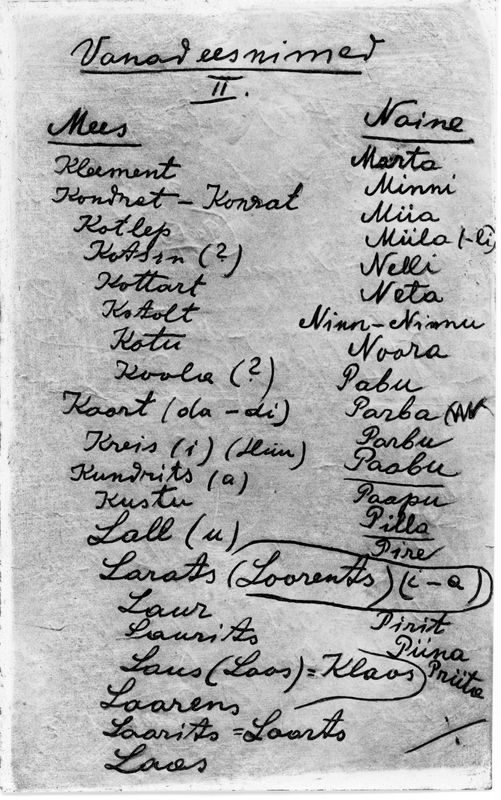 Vanad eesnimed
II.
Mees
Kleement
Kondrat - Konrat
Kotlep
Kotsin (?)
Kottart
Kotolt
Kotu
Koola (?)
Koort (da - di)
Kreis (i)
Kundrits (a)
Kustu
Lall (u)
Larats (Loorents) (i-a)
Laur
Laurits
Laus (Laos) = Klaos
Laarens
Laarits = Laarts
Laos
Naine
Marta
Minni
Miia
Miila (-li)
Nelli
Neta
Ninn - Ninnu
Noora
Pabu
Parba
Parbu
Paabu
Paapu
Pilla
Pire
Pirit
Piina
Priita